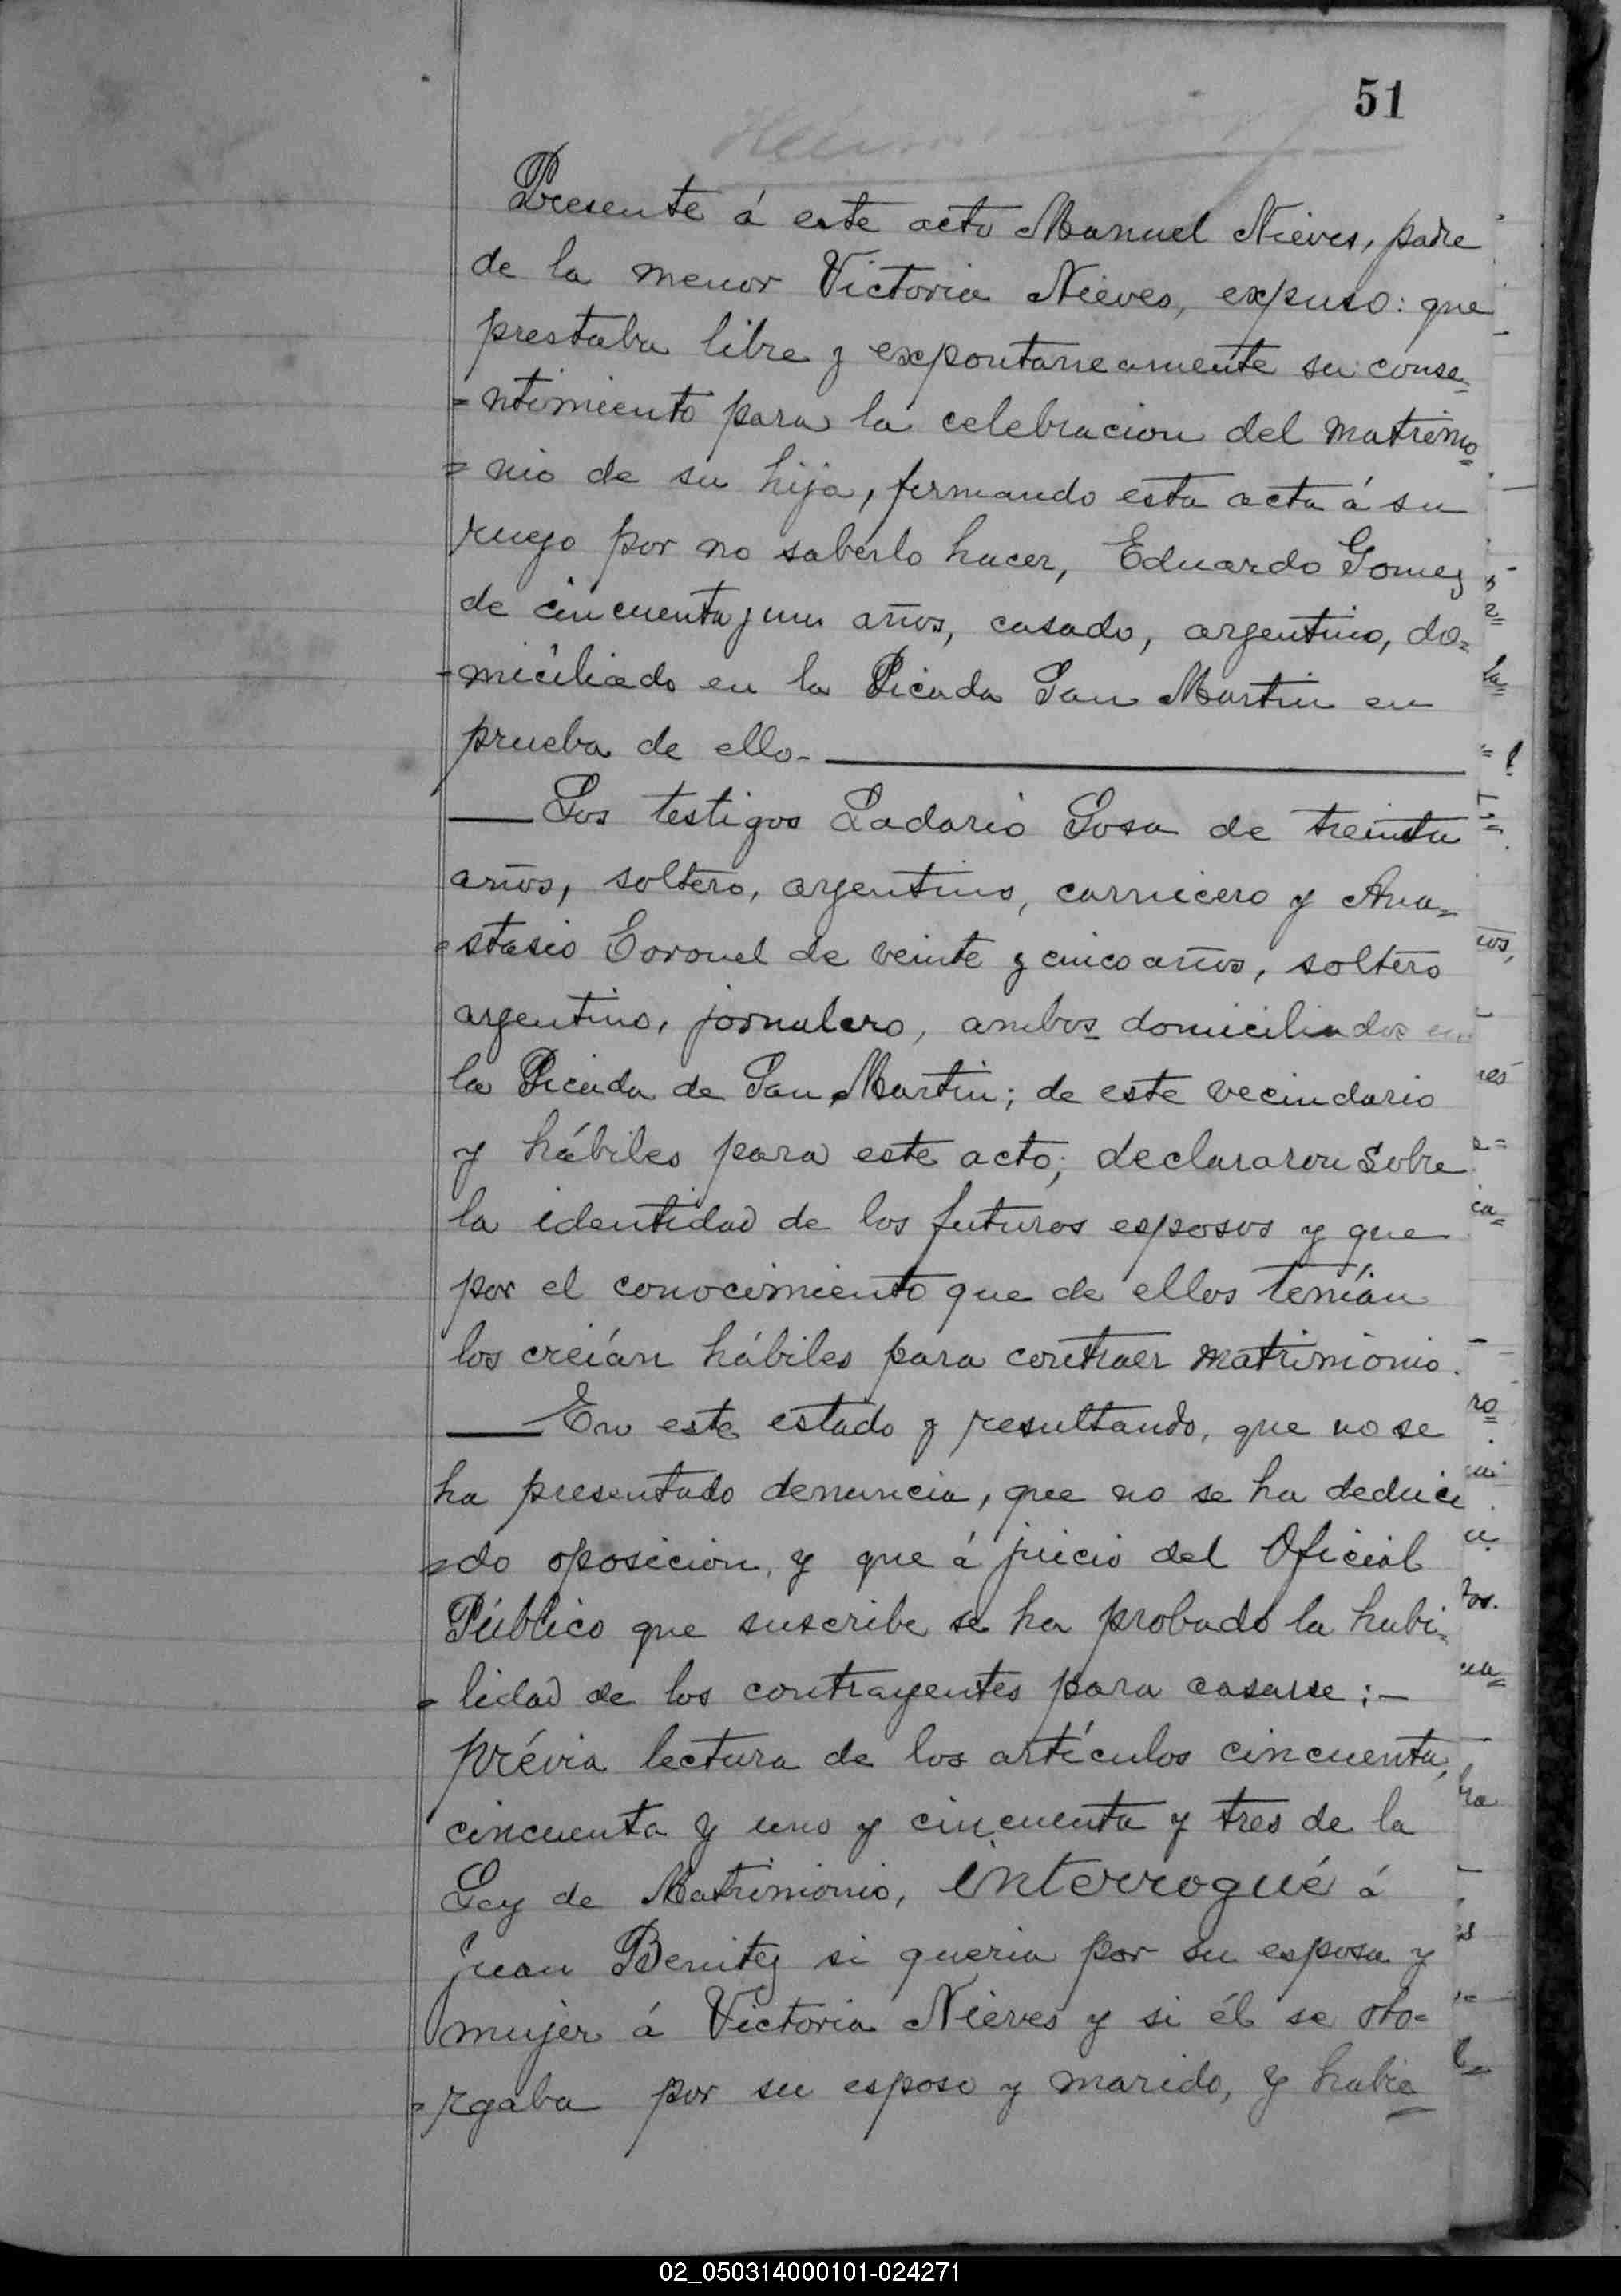 51
Presente á este acto Manuel Nieves, padre
de la menor Victoria Nieves, expuso: que
prestaba libre y expontaneamente su conse=
=ntimiento para la celebracion del matrimo=
=nio de su hija, firmando esta acta á su
ruego por no saberlo hacer, Eduardo Gomez
de cincuenta y un años, casado, argentino, do=
=miciliado en la Picada San Martin en
prueba de ello.
Los testigos Ladario Sosa de treinta
años, soltero, argentino, carnicero y Ana=
=stasio Coronel de veinte y cinco años, soltero
argentino, jornalero, ambos domiciliados en
la Picada de San Martin; de este vecindario
y hábiles para este acto; declararon sobre
la identidad de los futuros esposos y que
por el conocimiento que de ellos tenían
los creían hábiles para contraer matrimonio.
En este estado y resultando, que no se
ha presentado denuncia, que no se ha deduci
=do oposicion, y que á juicio del Oficial
Público que suscribe se ha probado la habi=
=lidad de los contrayentes para casarse:-
prévia lectura de los artículos cincuenta,
cincuenta y uno y cincuenta y tres de la
Ley de Matrimonio, interrogué á
Juan Benitez si queria por su esposa y
mujer á Victoria Nieves y si él se oto=
=rgaba por su esposo y marido, y habie
02_050314000101-024271